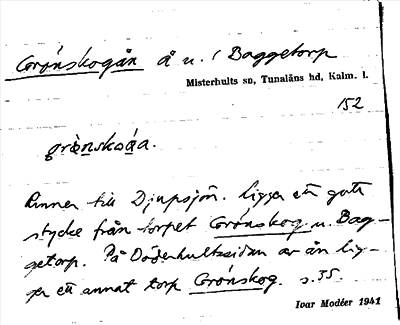 Grönskogån å u. / Baggetorp
Misterhults sn, Tunaläns hd, Kalm. l.
152
grö̀nskoá̱a.
Rinner till Djupsjön. Ligger ett gott
stycke från torpet Grönskog u. Bag-
getorp. På Döderhultssidan av ån lig-
ger ett annat torp Grönskog. s. 35.
Ivar Modéer 1941